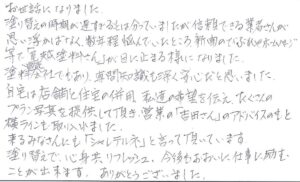 お世話になりました。
塗り替えの時期が遅すぎるとは分っていましたが信頼できる業者さんが
思い浮かばなく、数年程悩んでいたところ新聞のちらしやホームページ
等で 塗料さん が目に止まる様になりました。
塗料会社でもあり、専門知識も深く安心だと思いました。
自宅は店舗と住宅の併用 私達の希望を伝え たくさんの
プラン写真を提供して頂き、営業の「吉田さん」のアドバイスのもと
横ラインを取り入れました。
来るみなさんにも「シャレテルネ」と言って頂いています
塗り替えで、心身共、リフレッシュ、今後もおおいに仕事に励む
ことが出来ます。 ありがとうございました。